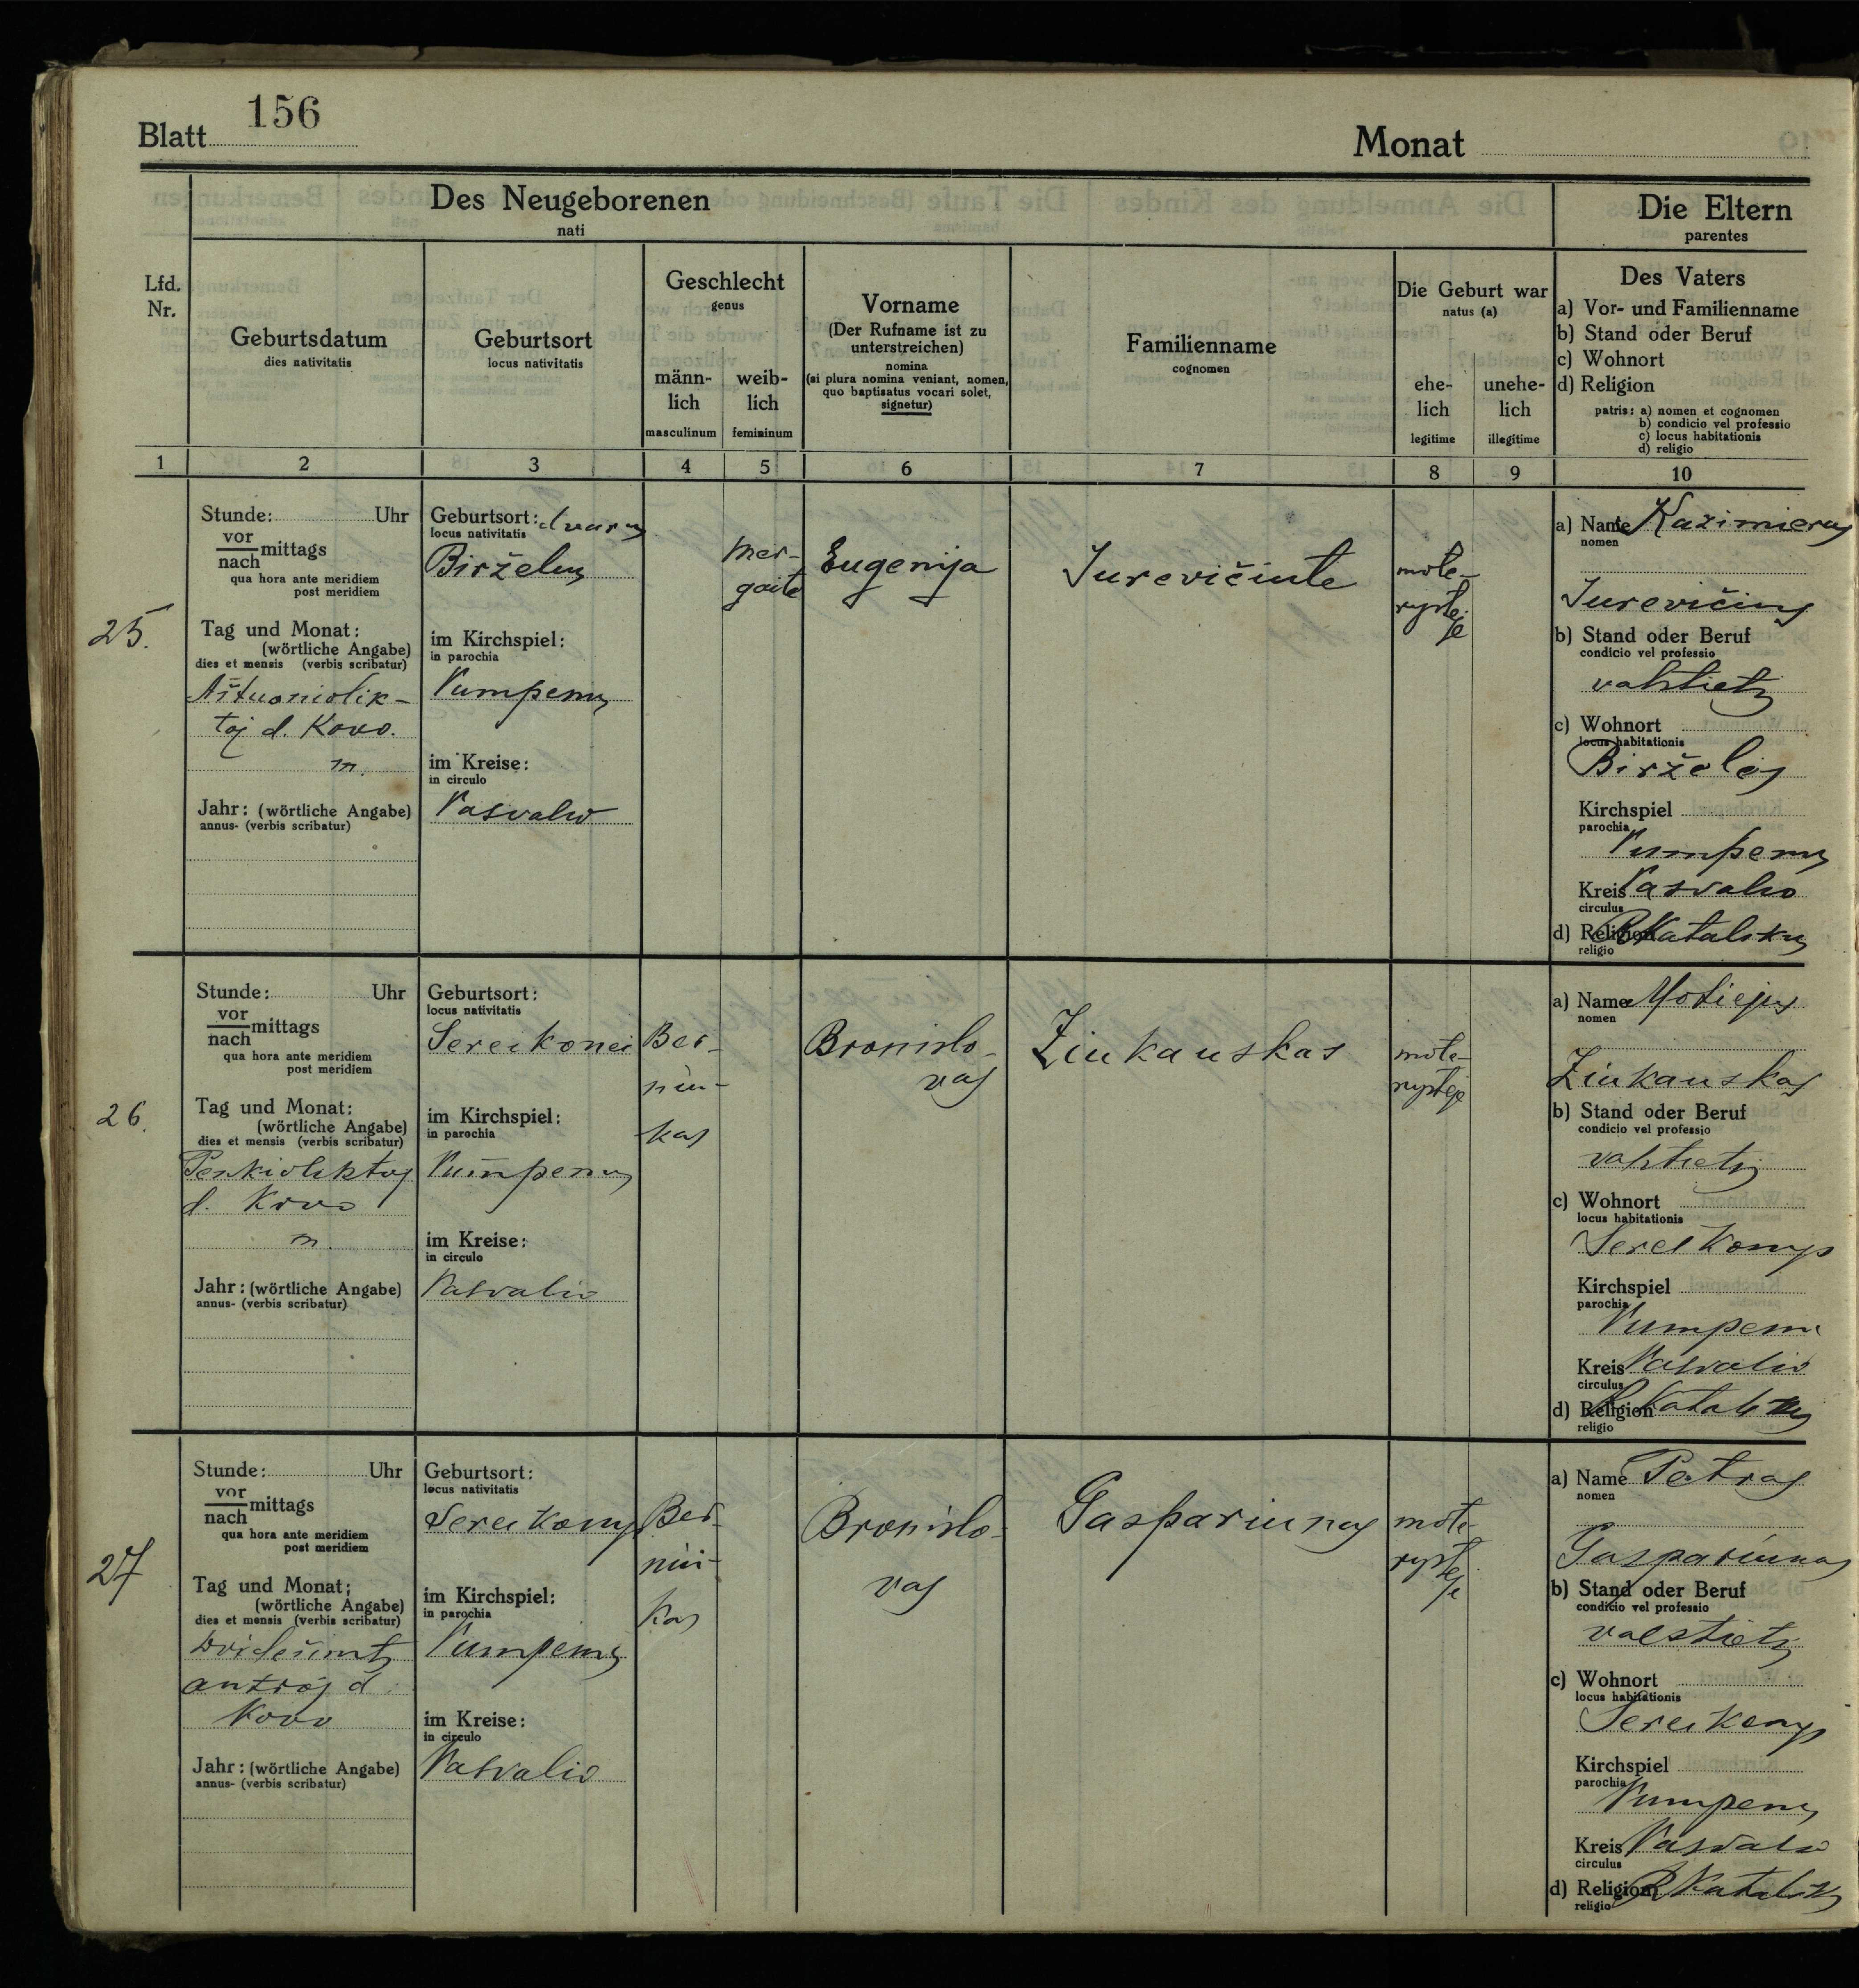 Blatt 156
Monat
Des Neugeborenen
nati
Die Eltern
parentes
Lfd.
Nr.
Geburtsdatum
dies nativitatis
Geburtsort
locus nativitatis
Geschlecht
genus
männ-
lich
masculinum
weib-
lich
femininum
Vorname
(Der Rufname ist zu
unterstreichen)
nomina
(si plura nomina veniant, nomen,
quo baptisatus vocari solet,
signetur)
Familienname
cognomen
Die Geburt war
natus (a)
ehe-
lich
legitime
unehe-
lich
illegitime
Des Vaters
a) Vor- und Familienname
b) Stand oder Beruf
c) Wohnort
d) Religion
patris: a) nomen et cognomen
b) condicio vel professio
c) locus habitationis
d) religio
1 2 3 4 5 6 7 8 9 10
25.
Stunde: Uhr
vor
nach mittags
qua hora ante meridiem
post meridiem
Tag und Monat:
(wörtliche Angabe)
dies et mensis (verbis scribatur)
Aštuoniolik-
toj d. Kovo.
m.
Jahr: (wörtliche Angabe)
annus- (verbis scribatur)
Geburtsort: dvaras
locus nativitatis
im Kirchspiel:
in parochia
im Kreise:
in circulo
Vasvalio
Mer-
gaitė
Eugenija
Jurevičiute
mote-
rystė-
je
a) Name Kazimieras
nomen
Jurevičius
b) Stand oder Beruf
condicio vel professio
valstietis
c) Wohnort
locus habitationis
Kirchspiel
parochia
Kreis Vasvalio
circulus
d) Religion R Katalikų
religio
26.
Stunde: Uhr
vor
nach mittags
qua hora ante meridiem
post meridiem
Tag und Monat:
(wörtliche Angabe)
dies et mensis (verbis scribatur)
Penkioliktoj
d. Kovo
m.
Jahr: (wörtliche Angabe)
annus- (verbis scribatur)
Geburtsort:
locus nativitatis
im Kirchspiel:
in parochia
im Kreise:
in circulo
Vasvalio
Ber-
niu-
kas
Bronislo-
vas
Ziukauskas
mote-
rystėje
a) Name Motiejus
nomen
Ziukauskas
b) Stand oder Beruf
condicio vel professio
valstietis
c) Wohnort
locus habitationis
Kirchspiel
parochia
Kreis Vasvalio
circulus
d) Religion R Katalikų
religio
27
Stunde: Uhr
vor
nach mittags
qua hora ante meridiem
post meridiem
Tag und Monat:
(wörtliche Angabe)
dies et mensis (verbis scribatur)
Dvidešimts
antroj d.
Kovo
Jahr: (wörtliche Angabe)
annus- (verbis scribatur)
Geburtsort:
locus nativitatis
im Kirchspiel:
in parochia
im Kreise:
in circulo
Vasvalio
Ber-
niu-
kas
Bronislo-
vas
Gaspariunas
mote-
rystė-
je
a) Name Petras
nomen
Gaspariunas
b) Stand oder Beruf
condicio vel professio
valstietis
c) Wohnort
locus habitationis
Kirchspiel
parochia
Kreis Vasvalio
circulus
d) Religion R Katalikų
religio